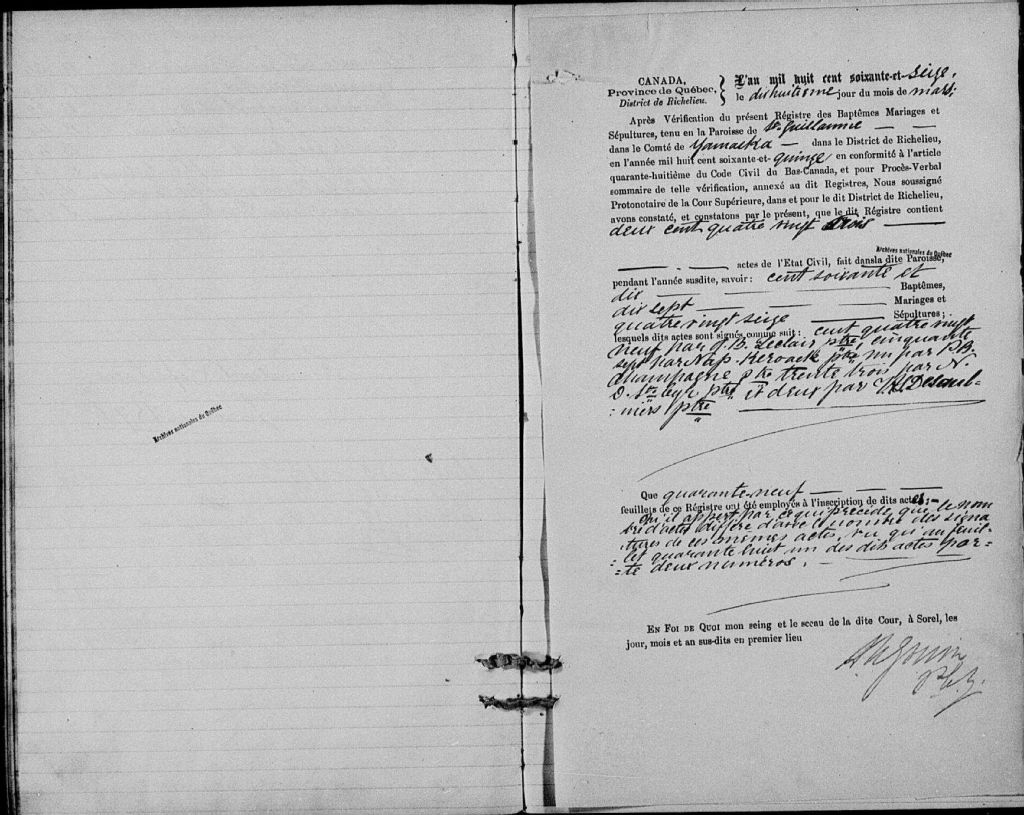 CANADA,
Province de Québec,
District de Richelieu.
L'an mil huit cent soixante-et-seize,
le dixhuitième jour du mois de mars;
Après Vérification du présent Régistre des Baptêmes Mariages et
Sépultures, tenu en la Paroisse de St. Guillaume — —
dans le Comté de Yamaska — dans le District de Richelieu,
en l'année mil huit cent soixante-et-quinze en conformité à l'article
quarante-huitième du Code Civil du Bas-Canada, et pour Procès-Verbal
sommaire de telle vérification, annexé au dit Registres, Nous soussigné
Protonotaire de la Cour Supérieure, dans et pour le dit District de Richelieu,
avons constaté, et constatons par le présent, que le dit Régistre contient
deux cent quatre vingt trois —
Archives nationales du Québec
actes de l'Etat Civil, fait dans la dite Paroisse,
pendant l'année susdite, savoir: cent soixante et
dix — — — Baptêmes,
dix sept — — — Mariages et
quatre vingt seize — Sépultures;
lesquels dits actes sont signés comme suit: cent quatre vingt
neuf par J. B. Leclair ptre, cinquante
sept par Nap. Keroack ptre un par P. B.
Champagne ptre trente trois par N.
D. St. Cyr ptre et deux par Desaul-
:niers ptre
Archives nationales du Québec
Que quarante-neuf — — —
feuillets de ce Régistre ont été employés à l'inscription de dits actes:—
Qu'il appert par ce qui précède, que le nom
bre d'actes diffère d'avec le nombre des signa
tures de ces mêmes actes, vu qu'au feuil=
=let quarante huit un des dits actes por=
=te deux numéros. —
EN FOI DE QUOI mon seing et le sceau de la dite Cour, à Sorel, les
jour, mois et an sus-dits en premier lieu
Gouin
P.C.S.